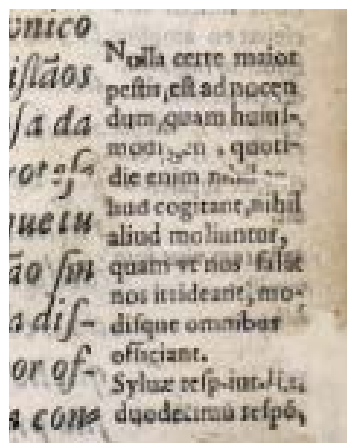 onico
istãos
sa da
ue tu
ão sin
a dis-
or of-
a com
Nulla certe maior
pestis, est ad nocen
dum, quam huius-
quoti-
die enim nihil
liud cogitant, nihil
aliud moliuntur,
quam vt nos
nos insideant, mo-
disque omnibus
officiant.
Syluæ
duodecimũ respõ,